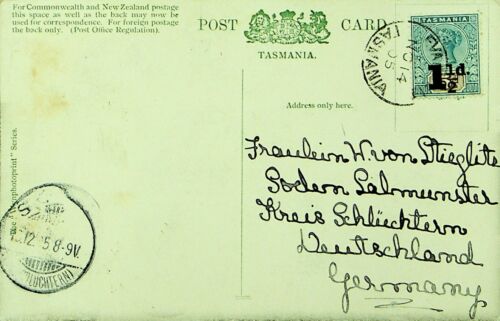 For Commonwealth and New Zealand postage
this space as well as the back may now be
used for correspondence. For foreign postage
the back only. (Post Office Regulation).
POST CARD
TASMANIA.
Address only here.
EVA
NO 14
05
TASMANIA
1½d.
Fraulein W. von Stieglitz
Sodern Salmunster
Kreis Schlüchtern
Deutschland
Germany
photoprint" Series.
12 5 8-9V.